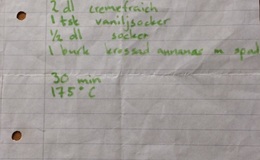 2 dl cremefraich
1 tsk vaniljsocker
1/2 dl socker
1 burk krossad ananas m spad
30 min
175° C